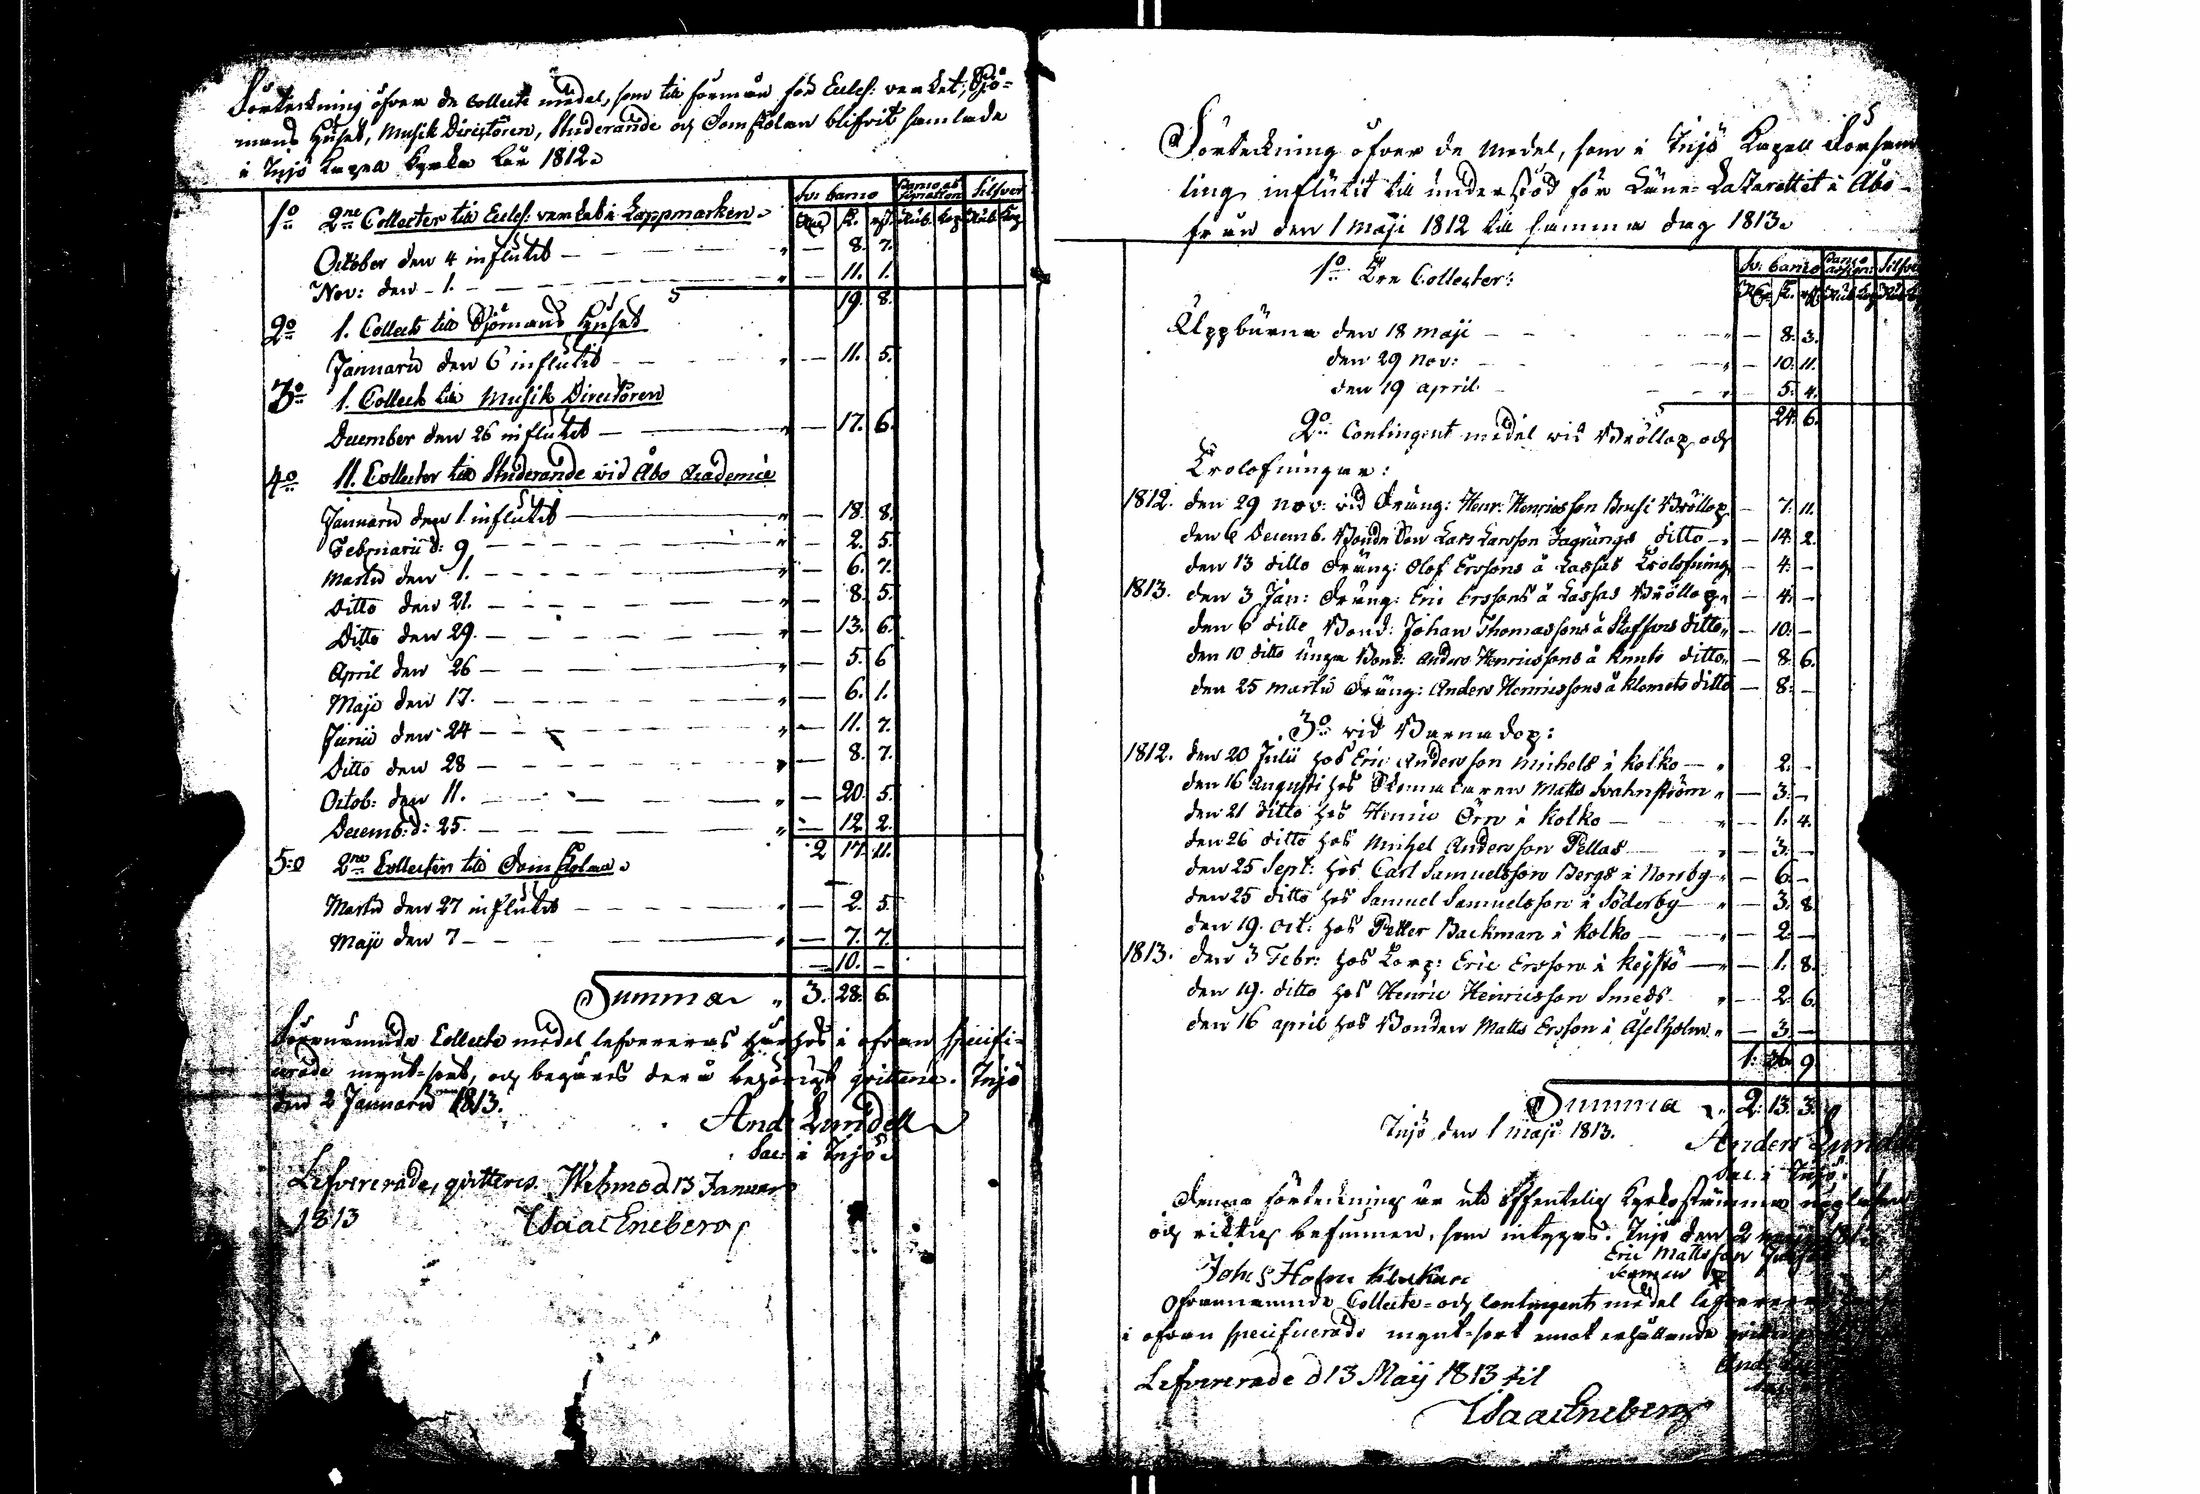 Förteckning öfver de Collecte medel, som till förmån för Eccles: verket, Sjö-
mans Huset, Musik Directören, Studerande och Domskolan blifvit samlade
i Injö Kapell Kyrka år 1812.
Sv: banco Banco assignation Silfver
Rd sk. rst. Rub. kop Rub. kop
1o 2ne Collecter till Eccles: verket i Lappmarken.
October den 4 influtit — " — 8. 7.
Nov: den 1. — " — 11. 1.
19. 8.
2o 1. Collect till Sjömans Huset
Januarii den 6 influtit — " — 11. 5.
3o 1. Collect till Musik Directören
December den 26 influtit — " — 17. 6.
4o 11. Collecter till Studerande vid Åbo Academie
Januarii den 1. influtit — " — 18. 8.
Februarii d: 9 — " — 2. 5.
Martii den 1. — " — 6. 7.
Ditto den 21. — " — 8. 5.
Ditto den 29. — " — 13. 6.
April den 26 — " — 5. 6
Maji den 17. — " — 6. 1.
Junii den 24 — " — 11. 7.
Ditto den 28 — " — 8. 7.
Octob: den 11. — " — 20. 5.
Decemb: d: 25. — " — 12. 2.
2 17. 11.
5:o 2ne Collecter till Domskolan.
Martii den 27 influtit — " — 2. 5.
Maji den 7 — " — 7. 7.
— 10. —
Summa " 3. 28. 6.
Förenämnde Collecte medel lefvereras härhos i ofvan specifi-
cerade mynt-sort, och begäres derå behörigt qvittence. Injö
den 2 Januarii 1813.
And: Lundell
Sac: i Injö
Lefvererade, qvitteres. Wehmo d 13 Januar
1813 Isaac Eneberg
Förteckning öfver de medel, som i Injö Kapell Församl
ling influtit till understöd för Läns-Lazarettet i Åbo
från den 1 Maji 1812 till samma dag 1813.
Sv: banco Banco assign: Silfver
1o Tre Collecter:
Uppburna den 18 Maji — " — 8. 3.
den 29 Nov: — " — 10. 11.
den 19 April — " — 5. 4.
24. 6.
2o Contingent medel vid Bröllop och
Trolofningar:
1812. den 29 Nov: vid Dräng: Henr: Henricsson Brusi Bröllop — 7. 11.
den 6 Decemb. Bonde Son Lars Larsson ditto — " — 14. 2.
den 13 ditto Dräng: Olof Erssons å Lassas Trolofning — 4. —
1813. den 3 Jan: Dräng: Eric Erssons å Lassas Bröllop " — 4. —
den 6 ditto Bond: Johan Thomassons å Staffans ditto " — 10. —
den 10 ditto unga Bond: Anders Henricssons å Knuts ditto " — 8. 6.
den 25 Martii Dräng: Anders Henricssons å Klemets ditto — 8. —
3o vid Barnadop:
1812. den 20 Julii hos Eric Andersson Mihels i Kolko — " 2. —
den 16 Augusti hos Skomakaren Matts Svahnström " — 3. —
den 21 ditto hos Henric Örn i Kolko — " — 1. 4.
den 26 ditto hos Mihel Andersson Pellas — " — 3. —
den 25 Sept: hos Carl Samuelsson Bergs i Norrby " — 6. —
den 25 ditto hos Samuel Samuelsson i Söderby — " — 3. 8.
den 19. Oct: hos Petter Backman i Kolko — " — 2. —
1813. den 3 Febr: hos Corp: Eric Ersson i Kejstö — " — 1. 8.
den 19. ditto hos Henric Heinricsson Smeds " — 2. 6.
den 16 April hos Bonden Matts Ersson i Åselholm " — 3. —
1: 26 9
Summa " 2. 13. 3.
Injö den 1 Maji 1813. Anders Lundell
Sac. i Injö
Denna förteckning är uti offentelig Kyrkostämma uppläsen
och riktig befunnen, som intygas. Injö den 2 Maji
Joh: Holm Klockare Eric Mattsson
Ofvannämnde Collecte- och Contingents medel lefvereras
i ofvan specificerade mynt-sort emot erhållande
And:
Lefvererade d 13 Maij 1813 til
Isaac Eneberg